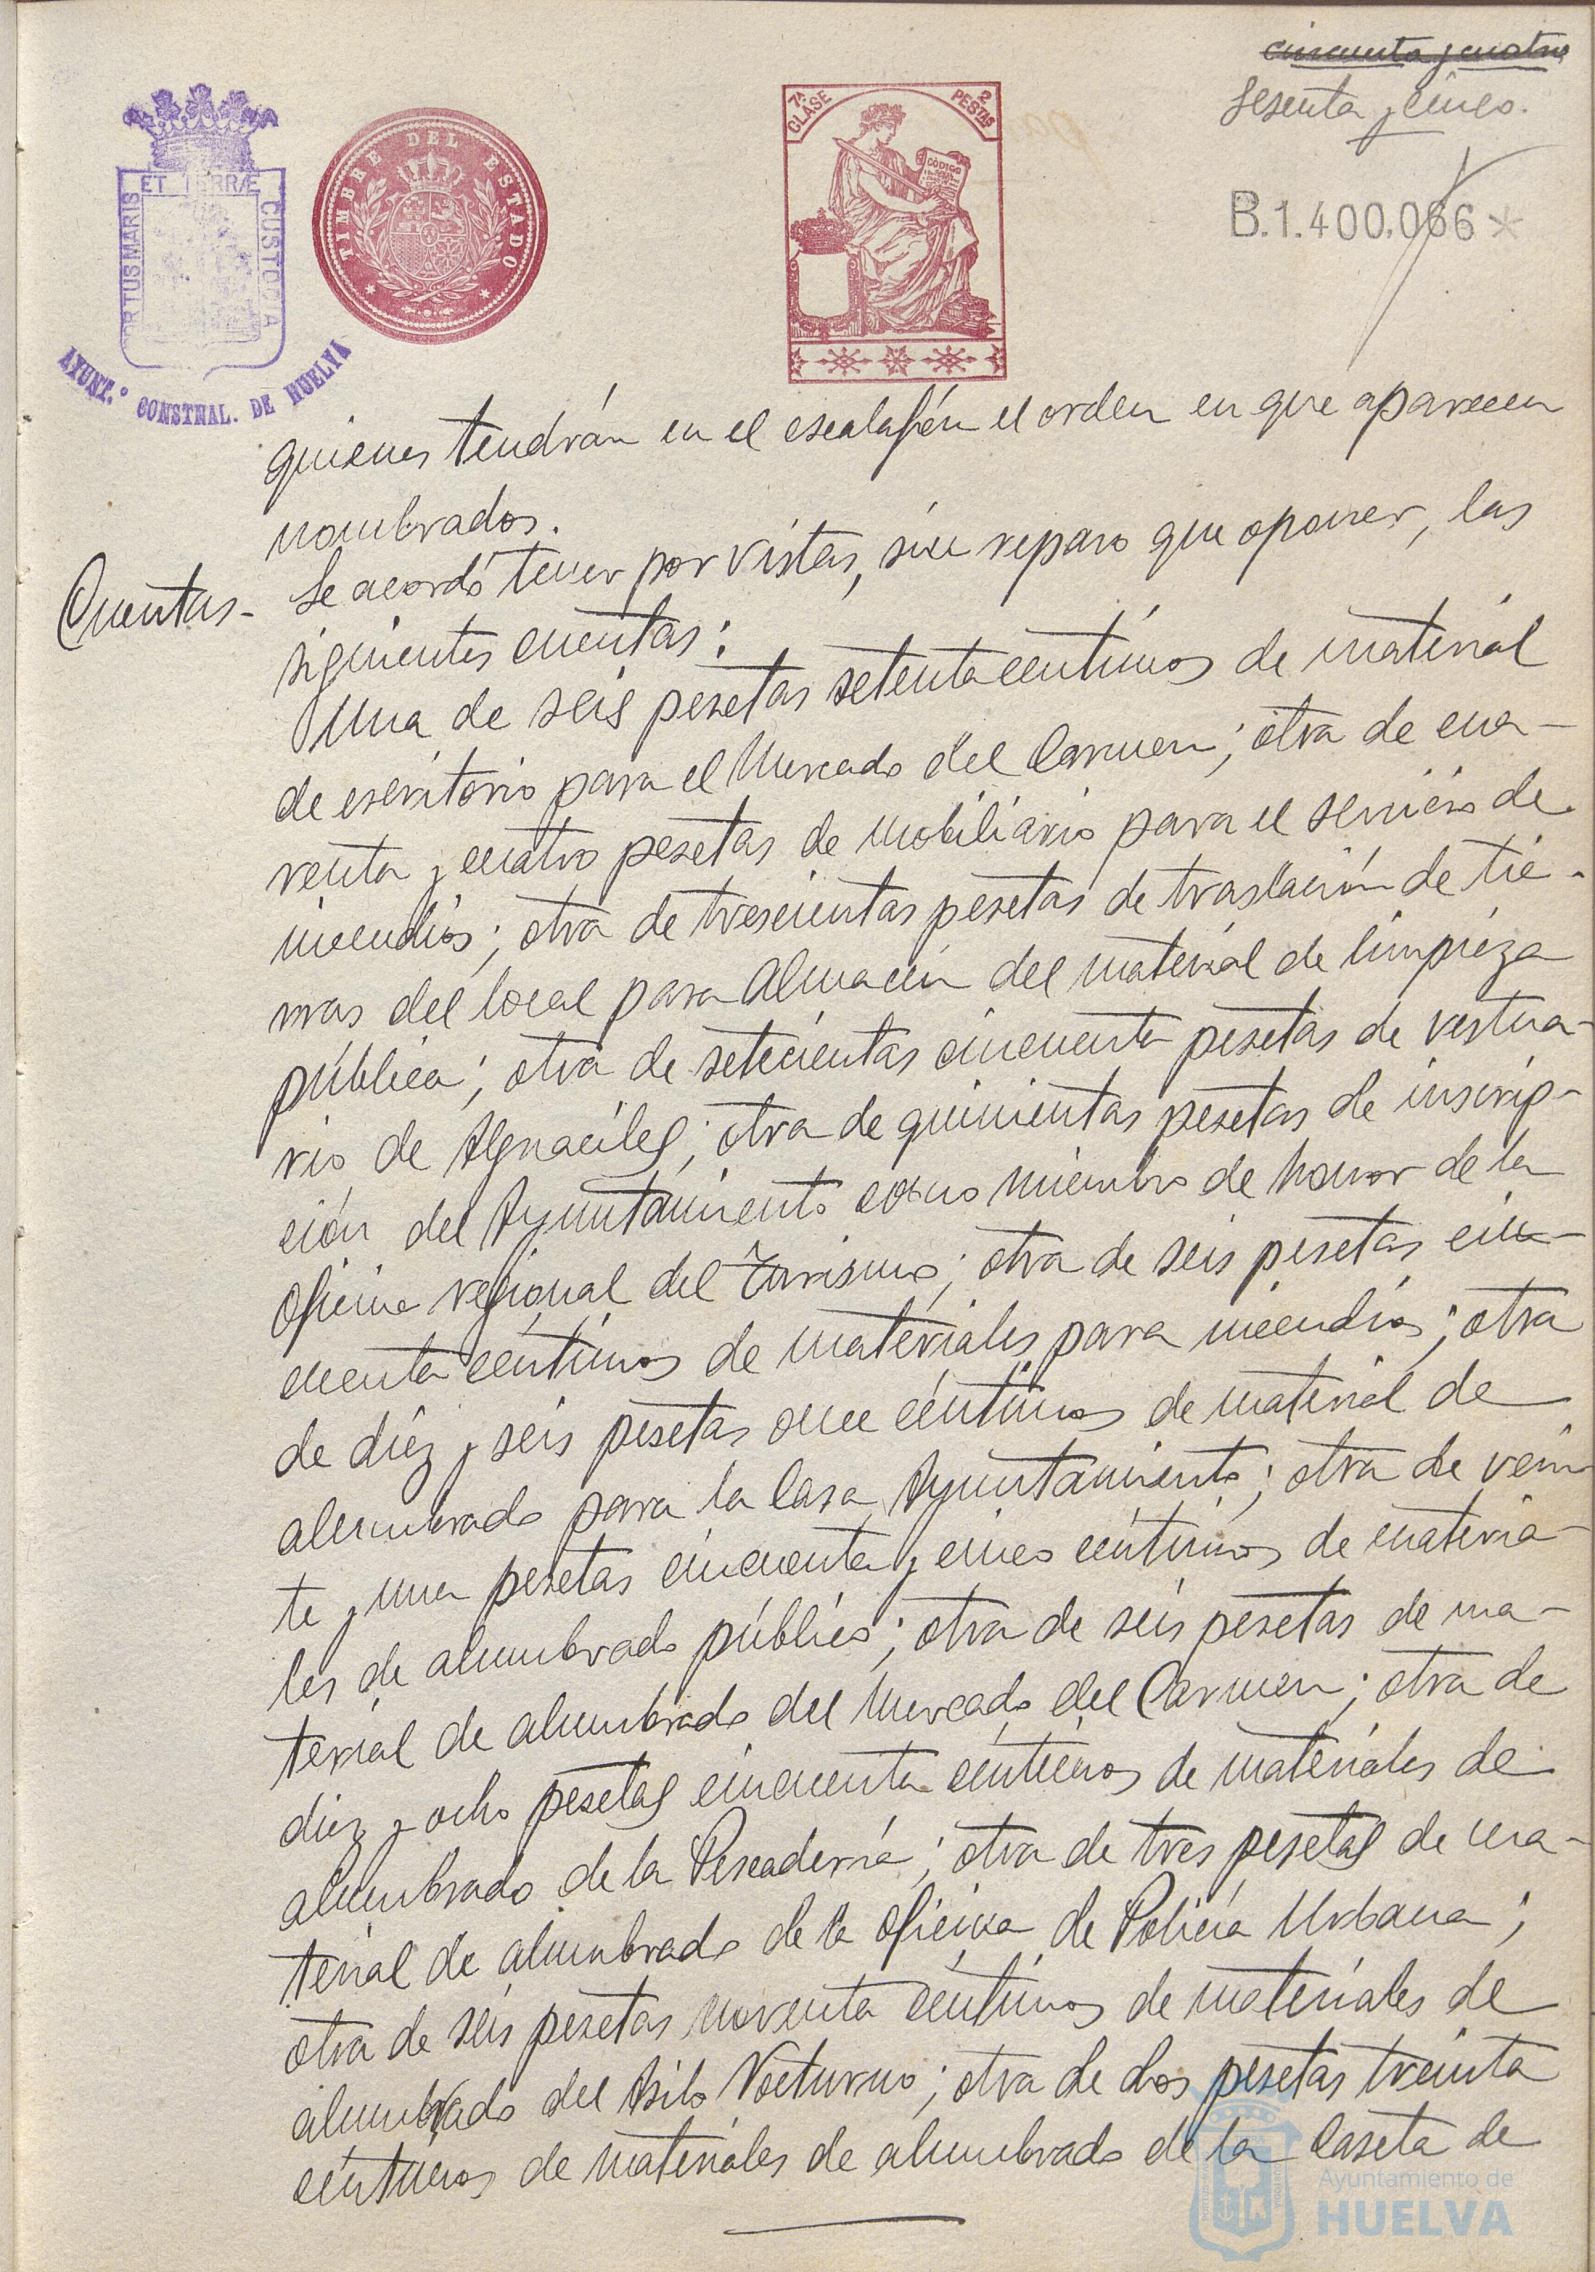 cincuenta y cuatro
Sesenta y cinco.
7ª CLASE
2 PESTAS
CÓDIGO
TIMBRE DEL ESTADO
PORTUS MARIS ET TERRÆ CUSTODIA
AYUNT.º CONSTNAL. DE HUELVA
B.1.400.066*
quienes tendrán en el escalafón el orden en que aparecen
nombrados.
Cuentas- Se acordó tener por vistas, sin reparo que oponer, las
siguientes cuentas:
Una de seis pesetas setenta centimos de material
de escritorio para el Mercado del Carmen; otra de cua-
renta y cuatro pesetas de mobiliario para el servicio de
incendios; otra de trescientas pesetas de traslación de tie-
rras del local para Almacén del material de limpieza
pública; otra de setecientas cincuenta pesetas de vestua-
rio de Alguaciles; otra de quinientas pesetas de inscrip-
ción del Ayuntamiento como miembro de honor de la
oficina regional del Turismo; otra de seis pesetas cin-
cuenta céntimos de materiales para incendios; otra
de diez y seis pesetas once céntimos de material de
alumbrado para la Casa Ayuntamiento; otra de vein-
te y una pesetas cincuenta y cinco céntimos de materia-
les de alumbrado público; otra de seis pesetas de ma-
terial de alumbrado del Mercado del Carmen; otra de
diez y ocho pesetas cincuenta céntimos de materiales de
alumbrado de la Pescadería; otra de tres pesetas de ma-
terial de alumbrado de la oficina de Policía Urbana;
otra de seis pesetas noventa céntimos de materiales de
alumbrado del Asilo Nocturno; otra de dos pesetas treinta
céntimos de materiales de alumbrado de la Caseta de
Ayuntamiento de
HUELVA